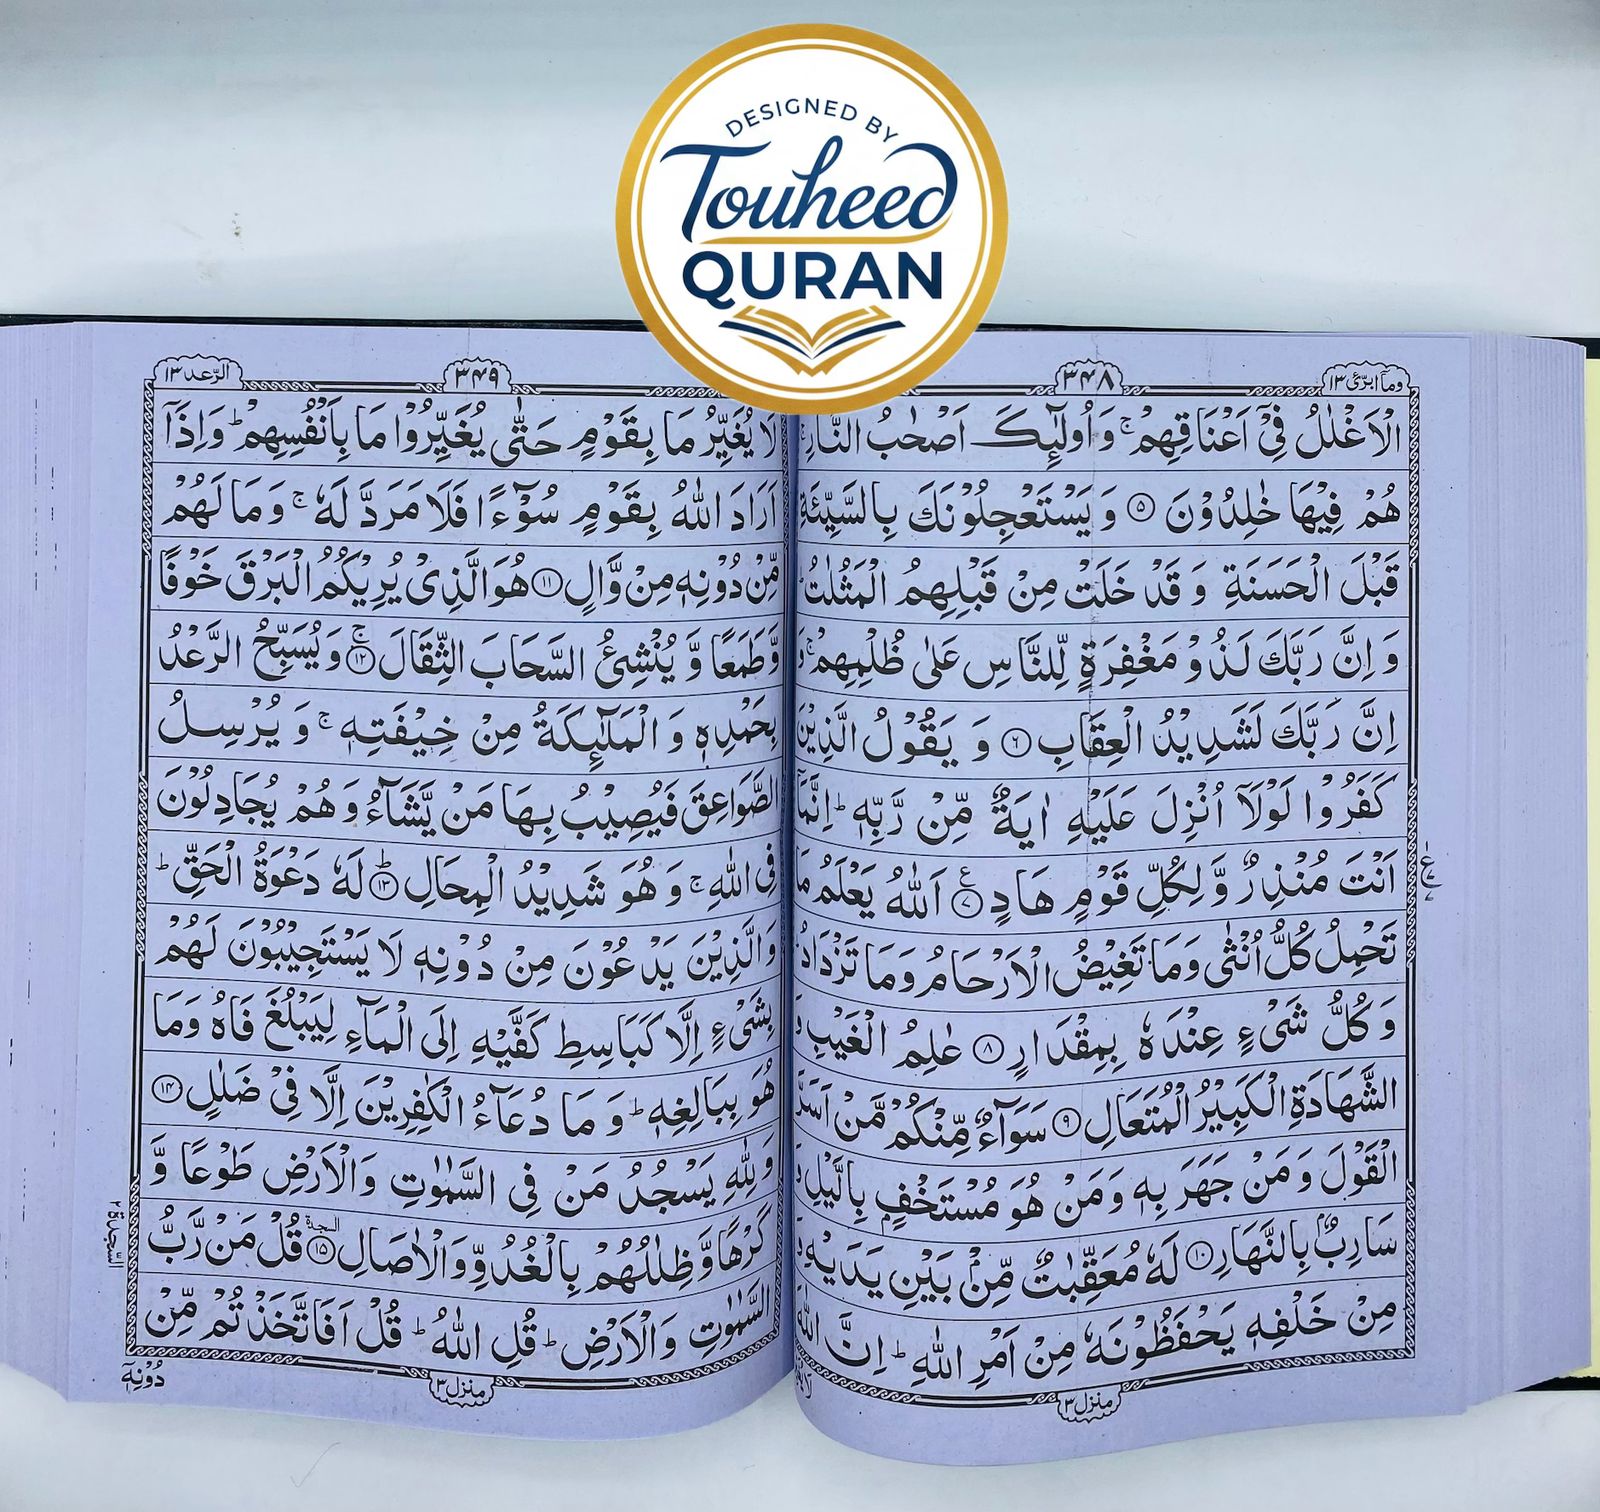 DESIGNED BY
Touheed
QURAN
وما ابرئ ١٣
٣٤٨
الْاَغْلٰلُ فِیْۤ اَعْنَاقِهِمْ ۚ وَ اُولٰٓئِكَ اَصْحٰبُ النَّارِ ۚ
هُمْ فِیْهَا خٰلِدُوْنَ ۝٥ وَ یَسْتَعْجِلُوْنَكَ بِالسَّیِّئَةِ
قَبْلَ الْحَسَنَةِ وَ قَدْ خَلَتْ مِنْ قَبْلِهِمُ الْمَثُلٰتُ ؕ
وَ اِنَّ رَبَّكَ لَذُوْ مَغْفِرَةٍ لِّلنَّاسِ عَلٰی ظُلْمِهِمْ ۚ وَ
اِنَّ رَبَّكَ لَشَدِیْدُ الْعِقَابِ ۝٦ وَ یَقُوْلُ الَّذِیْنَ
كَفَرُوْا لَوْلَاۤ اُنْزِلَ عَلَیْهِ اٰیَةٌ مِّنْ رَّبِّهٖ ؕ اِنَّمَاۤ
اَنْتَ مُنْذِرٌ وَّ لِكُلِّ قَوْمٍ هَادٍ ۝٧ اَللّٰهُ یَعْلَمُ مَا
تَحْمِلُ كُلُّ اُنْثٰی وَمَا تَغِیْضُ الْاَرْحَامُ وَمَا تَزْدَادُ ؕ
وَ كُلُّ شَیْءٍ عِنْدَهٗ بِمِقْدَارٍ ۝٨ عٰلِمُ الْغَیْبِ وَ
الشَّهَادَةِ الْكَبِیْرُ الْمُتَعَالِ ۝٩ سَوَآءٌ مِّنْكُمْ مَّنْ اَسَرَّ
الْقَوْلَ وَ مَنْ جَهَرَ بِهٖ وَمَنْ هُوَ مُسْتَخْفٍۭ بِالَّیْلِ وَ
سَارِبٌۢ بِالنَّهَارِ ۝١٠ لَهٗ مُعَقِّبٰتٌ مِّنْۢ بَیْنِ یَدَیْهِ وَ
مِنْ خَلْفِهٖ یَحْفَظُوْنَهٗ مِنْ اَمْرِ اللّٰهِ ؕ اِنَّ اللّٰهَ
منزل ٣
الرّعد ١٣
٣٤٩
لَا یُغَیِّرُ مَا بِقَوْمٍ حَتّٰی یُغَیِّرُوْا مَا بِاَنْفُسِهِمْ ؕ وَ اِذَاۤ
اَرَادَ اللّٰهُ بِقَوْمٍ سُوْٓءًا فَلَا مَرَدَّ لَهٗ ۚ وَ مَا لَهُمْ
مِّنْ دُوْنِهٖ مِنْ وَّالٍ ۝١١ هُوَ الَّذِیْ یُرِیْكُمُ الْبَرْقَ خَوْفًا
وَّ طَمَعًا وَّ یُنْشِئُ السَّحَابَ الثِّقَالَ ۝١٢ۚ وَ یُسَبِّحُ الرَّعْدُ
بِحَمْدِهٖ وَ الْمَلٰٓئِكَةُ مِنْ خِیْفَتِهٖ ۚ وَ یُرْسِلُ
الصَّوَاعِقَ فَیُصِیْبُ بِهَا مَنْ یَّشَآءُ وَ هُمْ یُجَادِلُوْنَ
فِی اللّٰهِ ۚ وَ هُوَ شَدِیْدُ الْمِحَالِ ۝١٣ؕ لَهٗ دَعْوَةُ الْحَقِّ ؕ
وَ الَّذِیْنَ یَدْعُوْنَ مِنْ دُوْنِهٖ لَا یَسْتَجِیْبُوْنَ لَهُمْ
بِشَیْءٍ اِلَّا كَبَاسِطِ كَفَّیْهِ اِلَی الْمَآءِ لِیَبْلُغَ فَاهُ وَمَا
هُوَ بِبَالِغِهٖ ؕ وَ مَا دُعَآءُ الْكٰفِرِیْنَ اِلَّا فِیْ ضَلٰلٍ ۝١٤
وَ لِلّٰهِ یَسْجُدُ مَنْ فِی السَّمٰوٰتِ وَ الْاَرْضِ طَوْعًا وَّ
كَرْهًا وَّ ظِلٰلُهُمْ بِالْغُدُوِّ وَ الْاٰصَالِ ۝١٥ السجدة قُلْ مَنْ رَّبُّ
السَّمٰوٰتِ وَ الْاَرْضِ ؕ قُلِ اللّٰهُ ؕ قُلْ اَفَاتَّخَذْتُمْ مِّنْ
السّجدة ٢
منزل ٣
دُوْنِهٖۤ